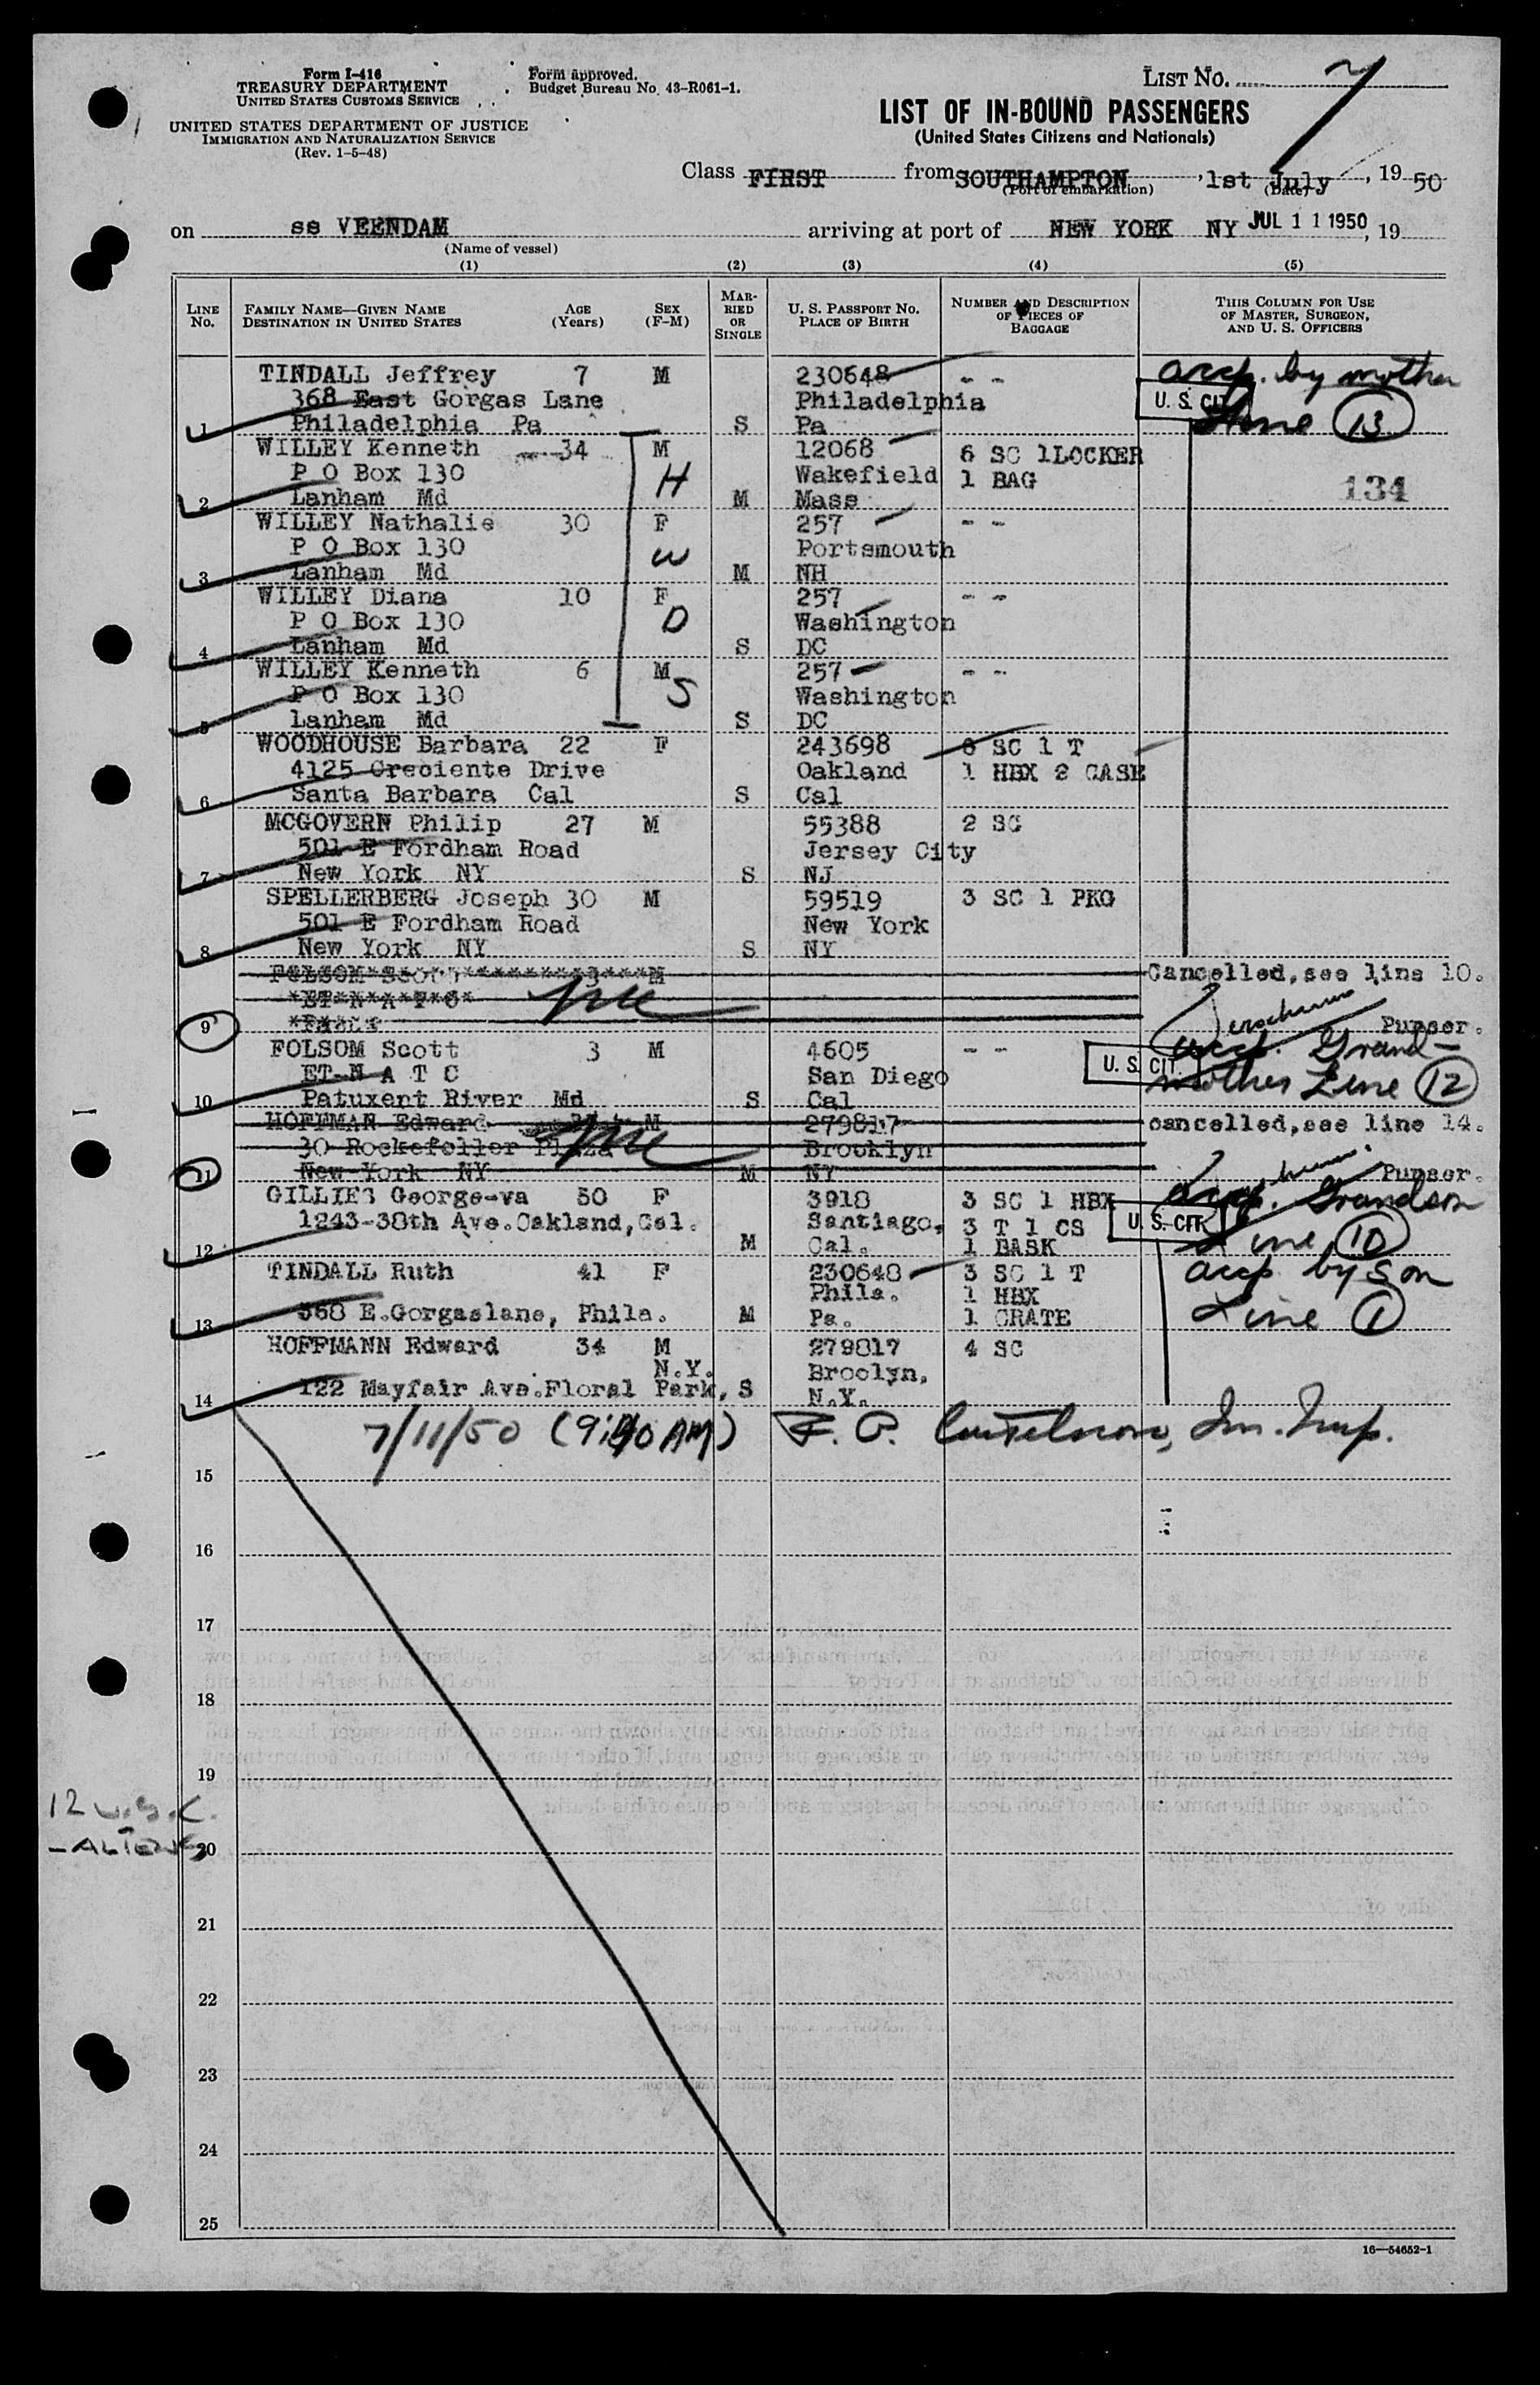 Form I-416
TREASURY DEPARTMENT
UNITED STATES CUSTOMS SERVICE
Form approved.
Budget Bureau No. 43-R061-1.
UNITED STATES DEPARTMENT OF JUSTICE
IMMIGRATION AND NATURALIZATION SERVICE
(Rev. 1-5-48)
LIST NO. 7
LIST OF IN-BOUND PASSENGERS
(United States Citizens and Nationals)
Class FIRST from SOUTHAMPTON, 1st July, 19 50
(Port of embarkation) (Date)
on ss VEENDAM arriving at port of NEW YORK NY JUL 11 1950, 19
(Name of vessel)
(1) (2) (3) (4) (5)
LINE NO. FAMILY NAME—GIVEN NAME DESTINATION IN UNITED STATES AGE (Years) SEX (F-M) MARRIED OR SINGLE U. S. PASSPORT NO. PLACE OF BIRTH NUMBER AND DESCRIPTION OF PIECES OF BAGGAGE THIS COLUMN FOR USE OF MASTER, SURGEON, AND U. S. OFFICERS
TINDALL Jeffrey 7 M 230648 - - accp. by mother
368 East Gorgas Lane Philadelphia U. S. CIT.
1 Philadelphia Pa S Pa Line 13
WILLEY Kenneth 34 M 12068 6 SC 1LOCKER
P O Box 130 H Wakefield 1 BAG 134
2 Lanham Md M Mass
WILLEY Nathalie 30 F 257 - -
P O Box 130 W Portsmouth
3 Lanham Md M NH
WILLEY Diana 10 F 257 - -
P O Box 130 D Washington
4 Lanham Md S DC
WILLEY Kenneth 6 M 257 - -
P O Box 130 S Washington
5 Lanham Md S DC
WOODHOUSE Barbara 22 F 243698 6 SC 1 T
4125 Creciente Drive Oakland 1 HBX 2 CASE
6 Santa Barbara Cal S Cal
MCGOVERN Philip 27 M 55388 2 SC
501 E Fordham Road Jersey City
7 New York NY S NJ
SPELLERBERG Joseph 30 M 59519 3 SC 1 PKG
501 E Fordham Road New York
8 New York NY S NY
FOLSOM Scott 3 M Cancelled, see line 10.
9 Purser.
FOLSOM Scott 3 M 4605 - - accp. Grand-
ET-N A T C San Diego U. S. CIT. mother Line 12
10 Patuxent River Md S Cal
HOFFMAN Edward M 279817 cancelled, see line 14.
30 Rockefeller Plaza Brooklyn
11 New York NY M NY Purser.
GILLIES George-va 50 F 3918 3 SC 1 HBX accp. Grandson
1243-38th Ave. Oakland, Cal. Santiago, 3 T 1 CS U. S. CIT.
12 M Cal. 1 BASK Line 10
TINDALL Ruth 41 F 230648 3 SC 1 T accp by son
Phila. 1 HBX
13 368 E. Gorgaslane, Phila. M Pa. 1 CRATE Line 1
HOFFMANN Edward 34 M 279817 4 SC
N.Y. Broclyn,
14 122 Mayfair Ave. Floral Park, S N.Y.
7/11/50 (9:40 AM) Im. Insp.
15
16
17
18
19
12 U.S.C.
- ALIENS
20
21
22
23
24
25
16—54652-1